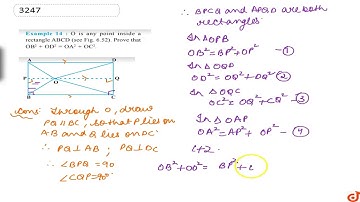 3247
Example 14 : O is any point inside a
rectangle ABCD (see Fig. 6.52). Prove that
OB² + OD² = OA² + OC².
A
D
P
O
Q
B
C
Cons: Through O, draw
PQ || BC, so that P lies on
AB and Q lies on DC
∴ PQ ⊥ AB ; PQ ⊥ DC
∴ ∠BPQ = 90
∠CQP = 90°
∴ BPCQ and APQD are both
rectangles
In △OPB
OB² = BP² + OP² — ①
In △OQD
OD² = OQ² + DQ² ②
In △OQC
OC² = OQ² + CQ² — ③
In △OAP
OA² = AP² + OP² — ④
1+2
OB² + OD² = BP² +